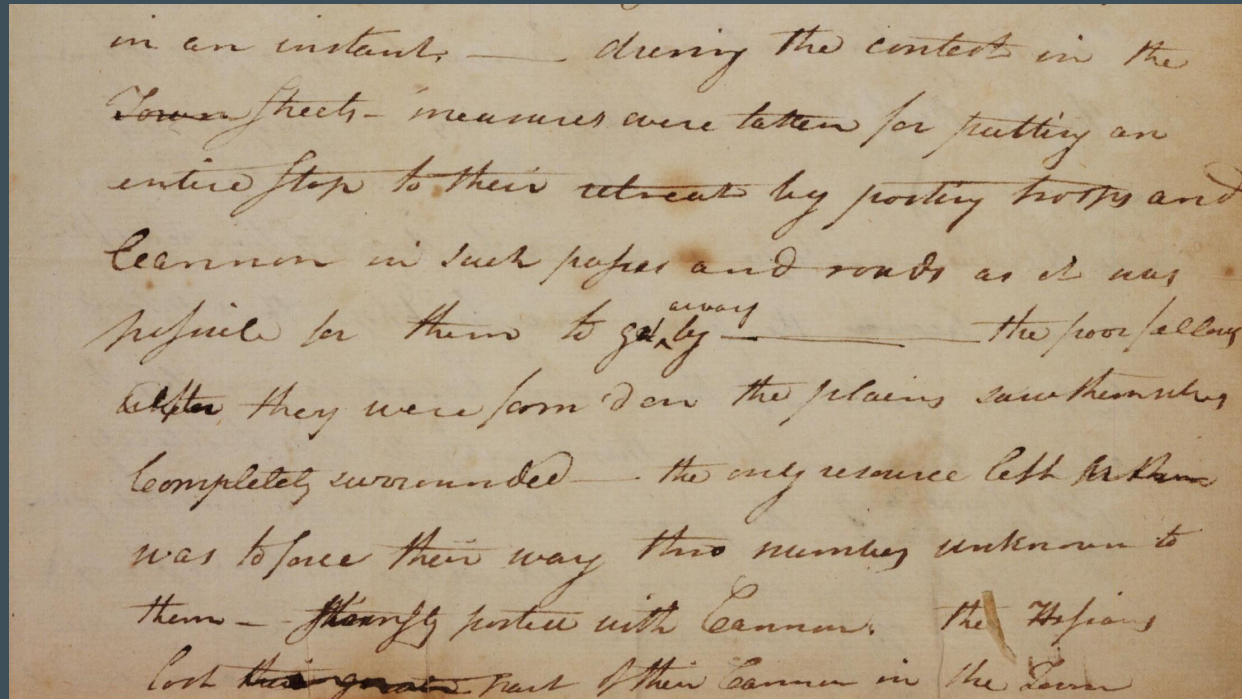 in an instant. — during the contest in the
Town Streets – measures were taken for putting an
entire Stop to their retreat by posting troops and
Cannon in such passes and roads as it was
possible for them to get away by — the poor fellows
after they were form'd on the plains saw themselves
Completely surrounded — the only resource left
was to force their way thro numbers unknown to
them – posted with Cannon. the Hessians
lost part of their Cannon in the Town